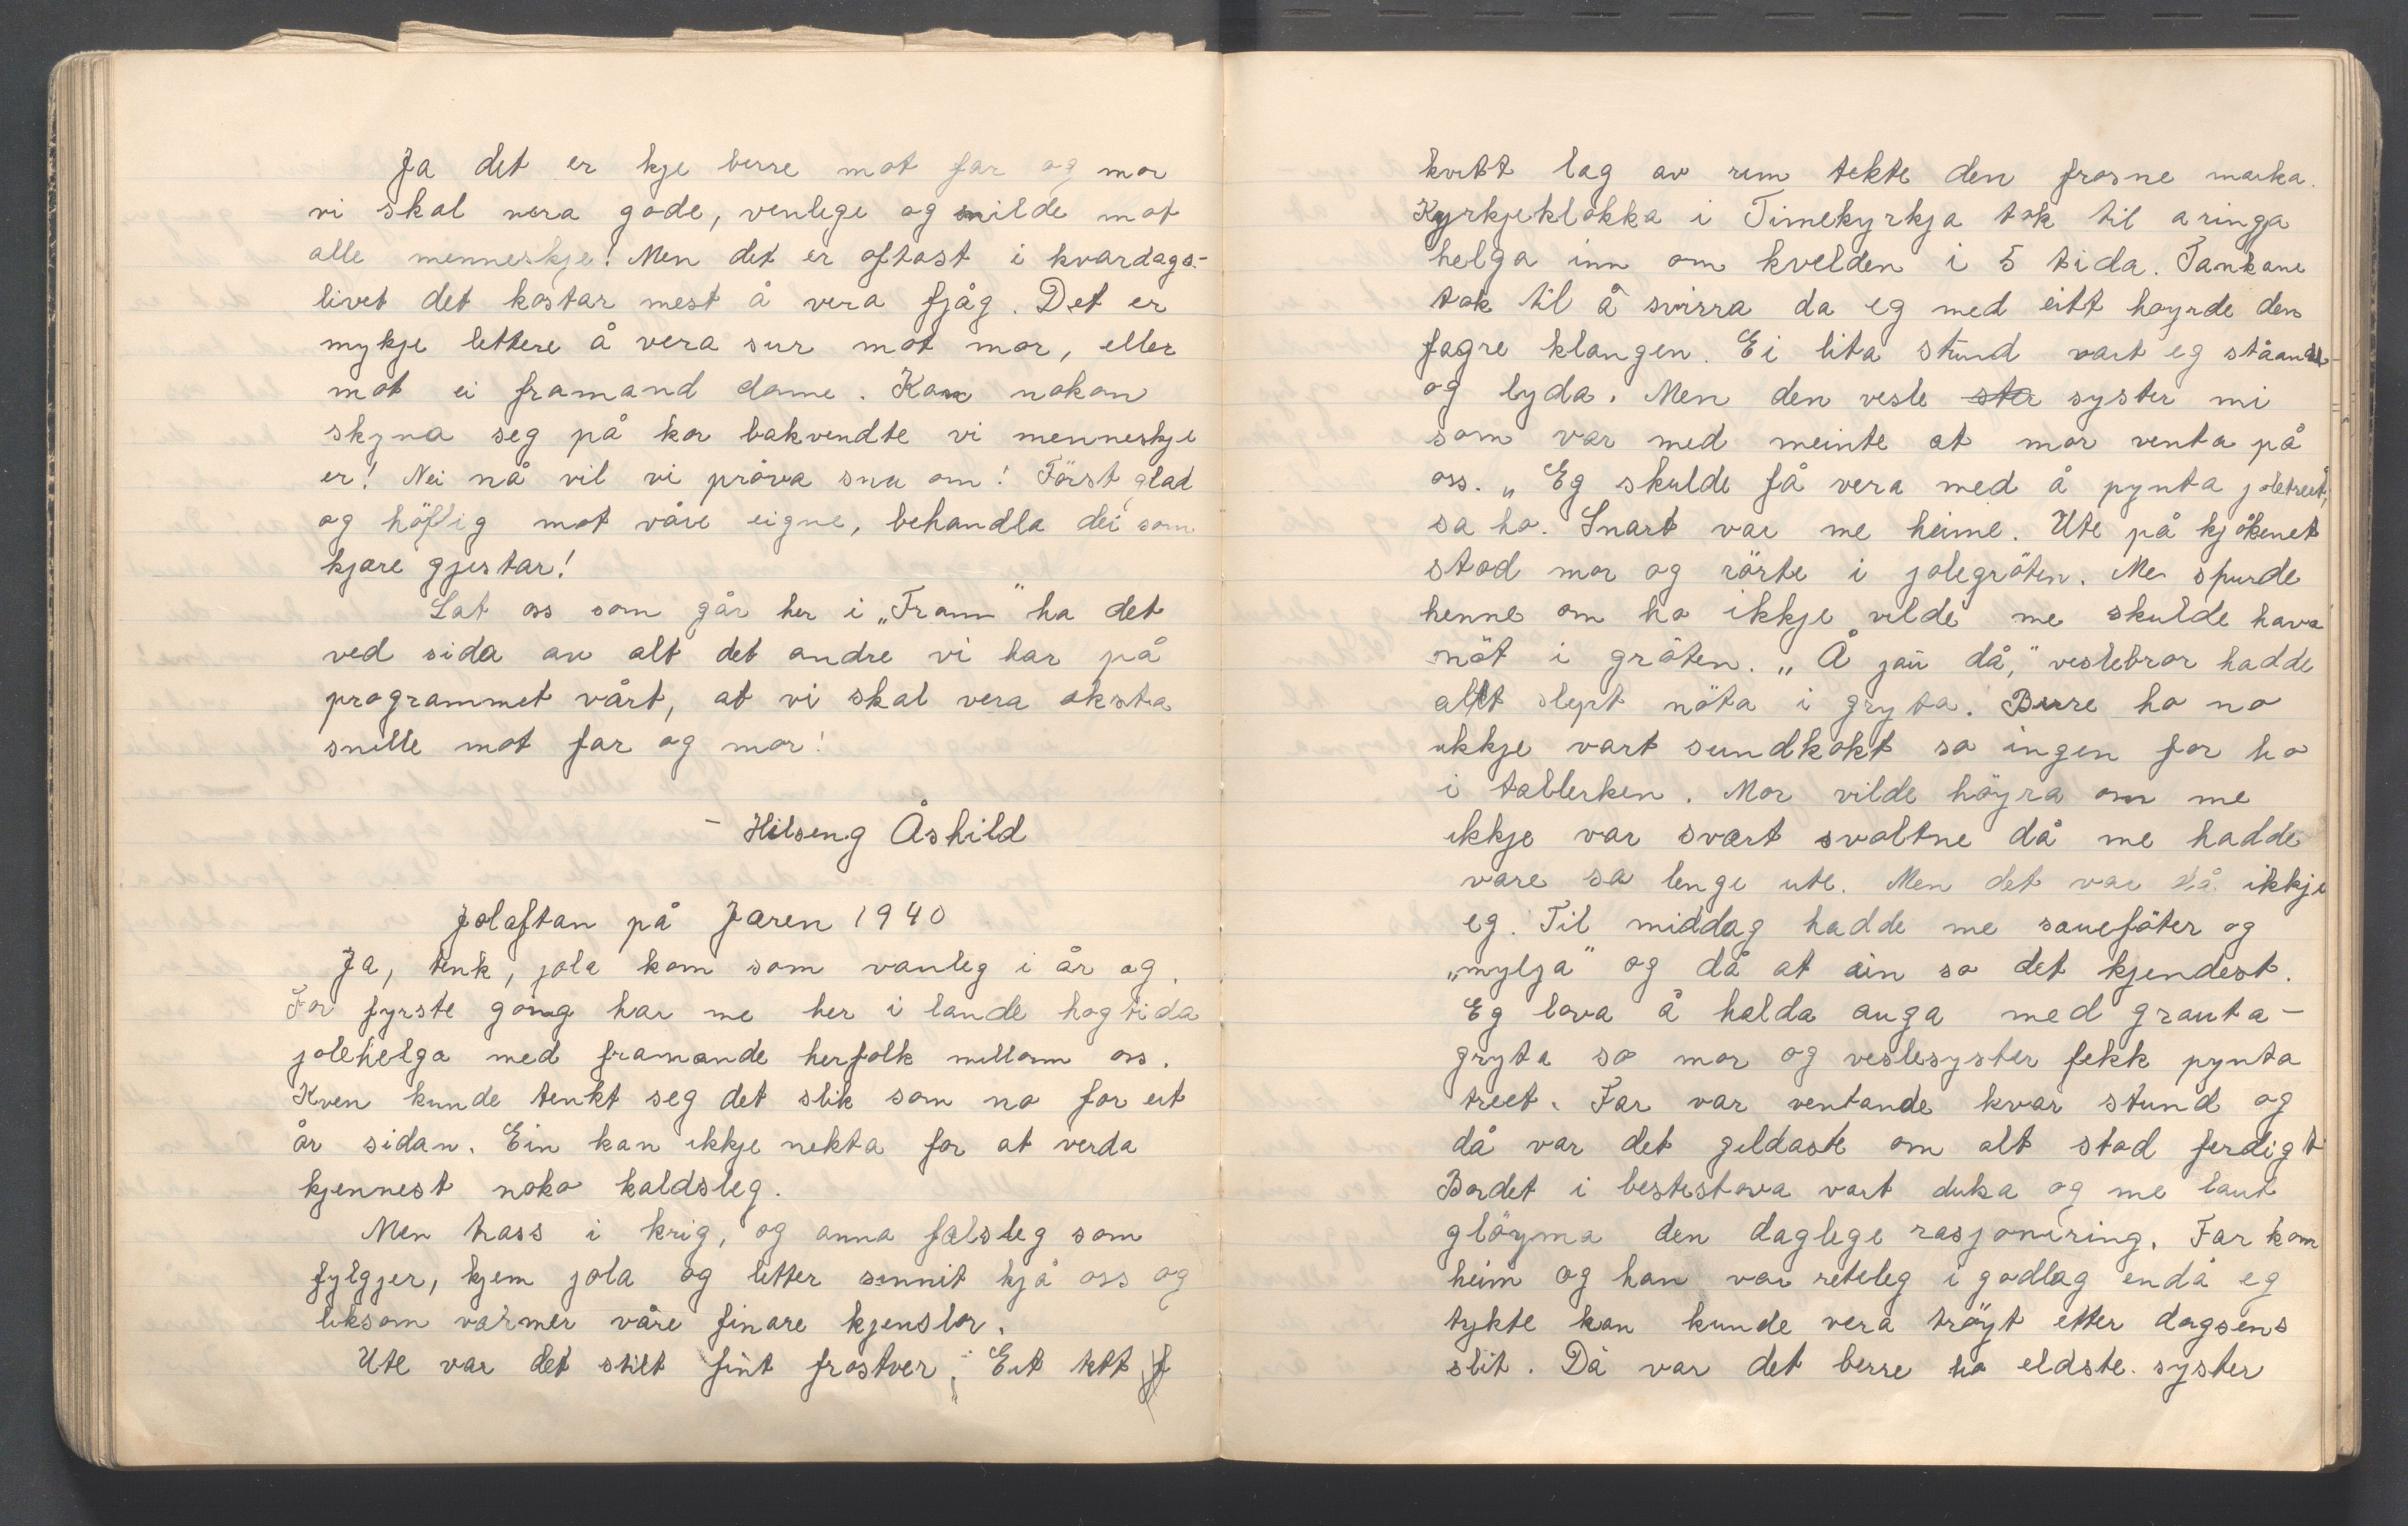 Ja det er kje berre mot far og mor
vi skal vera gode, venlege og milde mot
alle menneskje! Men det er oftast i kvardags-
livet det kostar mest å vera fjåg. Det er
mykje lettere å vera sur mot mor, eller
mot ei framand dame. Kan nokon
skyna seg på kor bakvendte vi menneskje
er! Nei nå vil vi pröva snu om! Först glad
og höflig mot våre eigne, behandla dei som
kjære gjestar!
Lat oss som går her i „Fram" ha det
ved sida av alt det andre vi har på
programmet vårt, at vi skal vera eksta
snille mot far og mor!
- Hilseng Åshild
Jolaftan på Jæren 1940
Ja, tenk, jola kom som vanleg i år og.
For fyrste gong har me her i lande högtida
jolehelga med framande herfolk millom oss.
Kven kunde tenkt seg det slik som no for eit
år sidan. Ein kan ikkje nekta for at verda
kjennest noko kaldsleg.
Men trass i krig, og anna fælsleg som
fylgjer, kjem jola og letter sinnit hjå oss og
liksom varmer våre finare kjenslor.
Ute var det stilt fint frostver. Eit tett
kvitt lag av rim tekte den frosne marka.
Kyrkjeklokka i Timekyrkja tok til a ringja
helga inn om kvelden i 5 tida. Tankane
tok til å svirra da eg med eitt høyrde den
fagre klangen. Ei lita stund vart eg ståande
og lyda. Men den vesle ster syster mi
som var med meinte at mor venta på
oss. „Eg skulde få vera med å pynta joletreet,"
sa ho. Snart var me heime. Ute på kjökenet
stod mor og rörte i jolegröten. Me spurde
henne om ho ikkje vilde me skulde hava
nöt i gröten. „Å jau då," veslebror hadde
allt slept nöta i gryta. Berre ho no
ikkje vart sundkokt so ingen for ho
i tallerken. Mor vilde höyra om me
ikkje var svært svoltne då me hadde
vare sa lenge ute. Men det var då ikkje
eg. Til middag hadde me saueföter og
„mylja" og då at ein so det kjendest.
Eg lova å halda auga med grauta-
gryta so mor og veslesyster fekk pynta
treet. Far var ventande kvar stund og
då var det gildaste om alt stod ferdigt
Bordet i bestestova vart duka og me laut
glöyma den daglege rasjonering. Far kom
heim og han var reteleg i godlag endå eg
tykte han kunde vera tröyt etter dagsens
slit. Då var det berre ho eldste syster